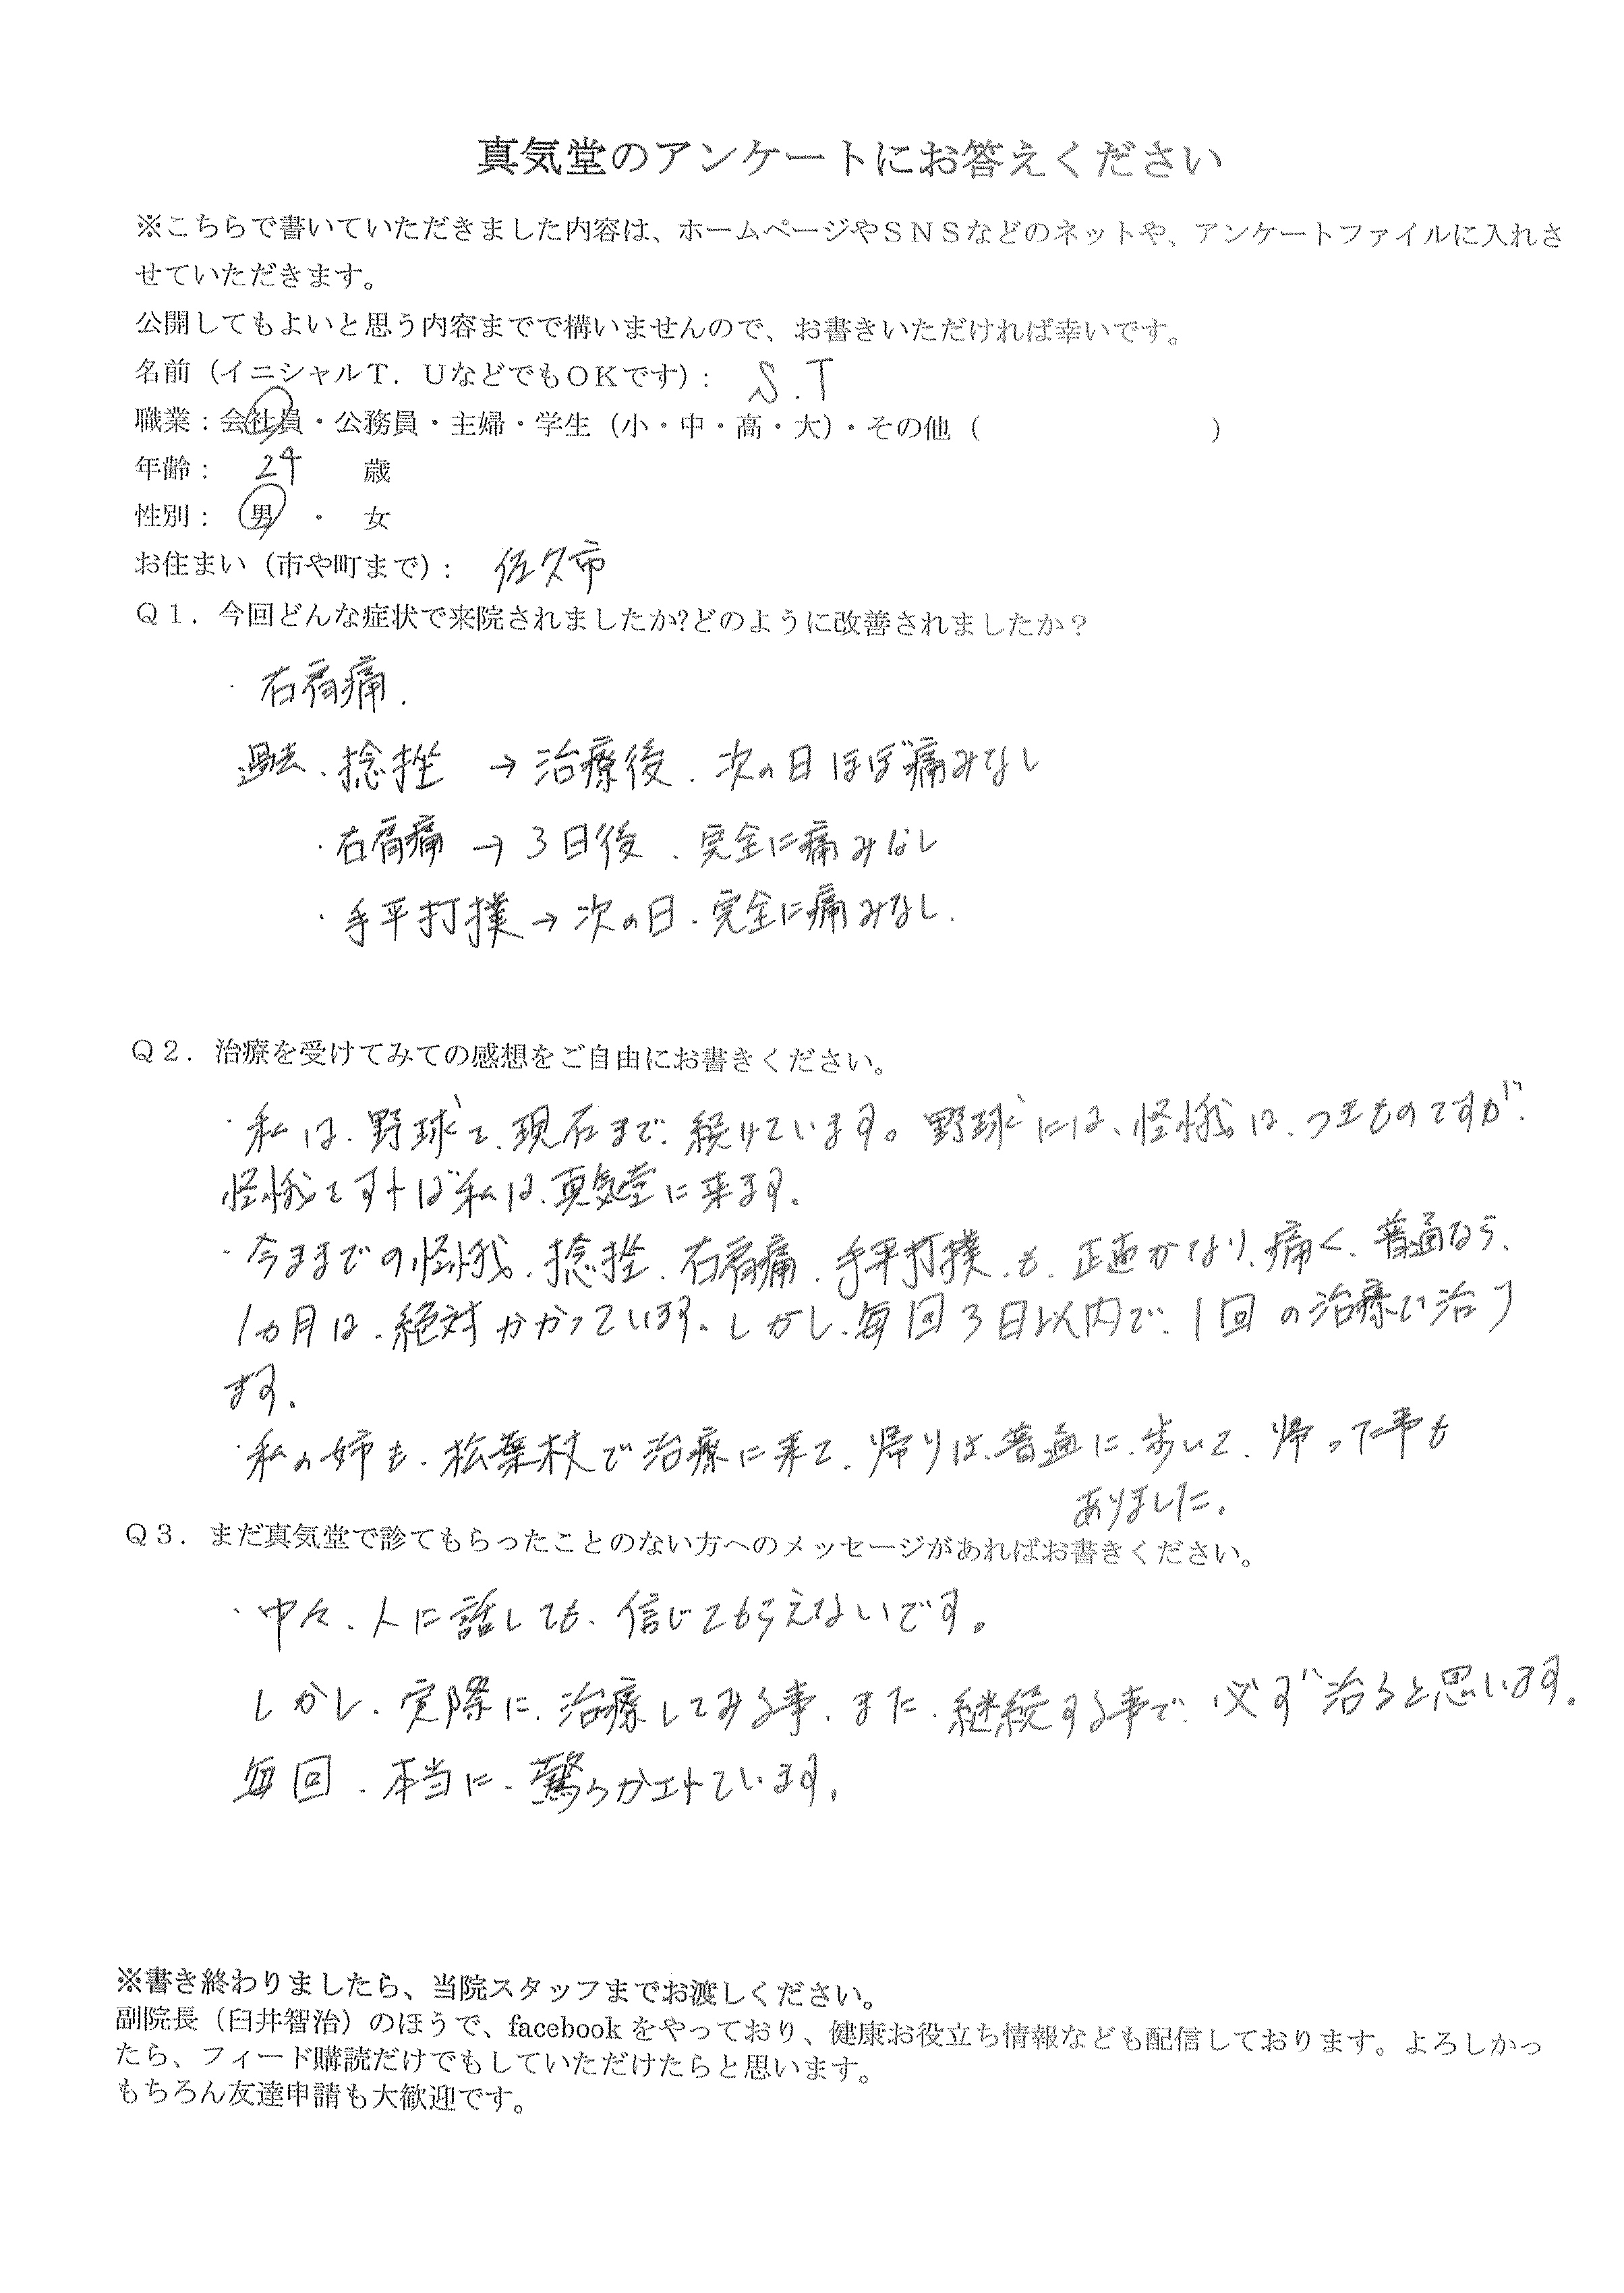 真気堂のアンケートにお答えください
※こちらで書いていただきました内容は、ホームページやＳＮＳなどのネットや、アンケートファイルに入れさ
せていただきます。
公開してもよいと思う内容までで構いませんので、お書きいただければ幸いです。
名前（イニシャルＴ．ＵなどでもＯＫです）： S.T
職業：会社員・公務員・主婦・学生（小・中・高・大）・その他（　　　　　　　　）
年齢： 24 歳
性別： 男 ・ 女
お住まい（市や町まで）： 佐久市
Ｑ１．今回どんな症状で来院されましたか?どのように改善されましたか？
・右肩痛.
過去・捻挫 → 治療後、次の日ほぼ痛みなし
・右肩痛 → 3日後、完全に痛みなし
・手平打撲 → 次の日、完全に痛みなし.
Ｑ２．治療を受けてみての感想をご自由にお書きください。
・私は、野球を、現在まで、続けています。野球には、怪我は、つきものですが、
怪我をすれば私は、真気堂に来ます。
・今までの怪我、捻挫、右肩痛、手平打撲、も、正直かなり、痛く、普通なら、
1ヵ月は、絶対かかっています。しかし、毎回3日以内で、1回の治療で治り
ます。
・私の姉も、松葉杖で治療に来て、帰りは、普通に、歩いて、帰った事も
ありました。
Ｑ３．まだ真気堂で診てもらったことのない方へのメッセージがあればお書きください。
・中々、人に話しても、信じてもらえないです。
しかし、実際に、治療してみる事、また、継続する事で、必ず治ると思います。
毎回、本当に、驚らかされています。
※書き終わりましたら、当院スタッフまでお渡しください。
副院長（臼井智治）のほうで、facebookをやっており、健康お役立ち情報なども配信しております。よろしかっ
たら、フィード購読だけでもしていただけたらと思います。
もちろん友達申請も大歓迎です。